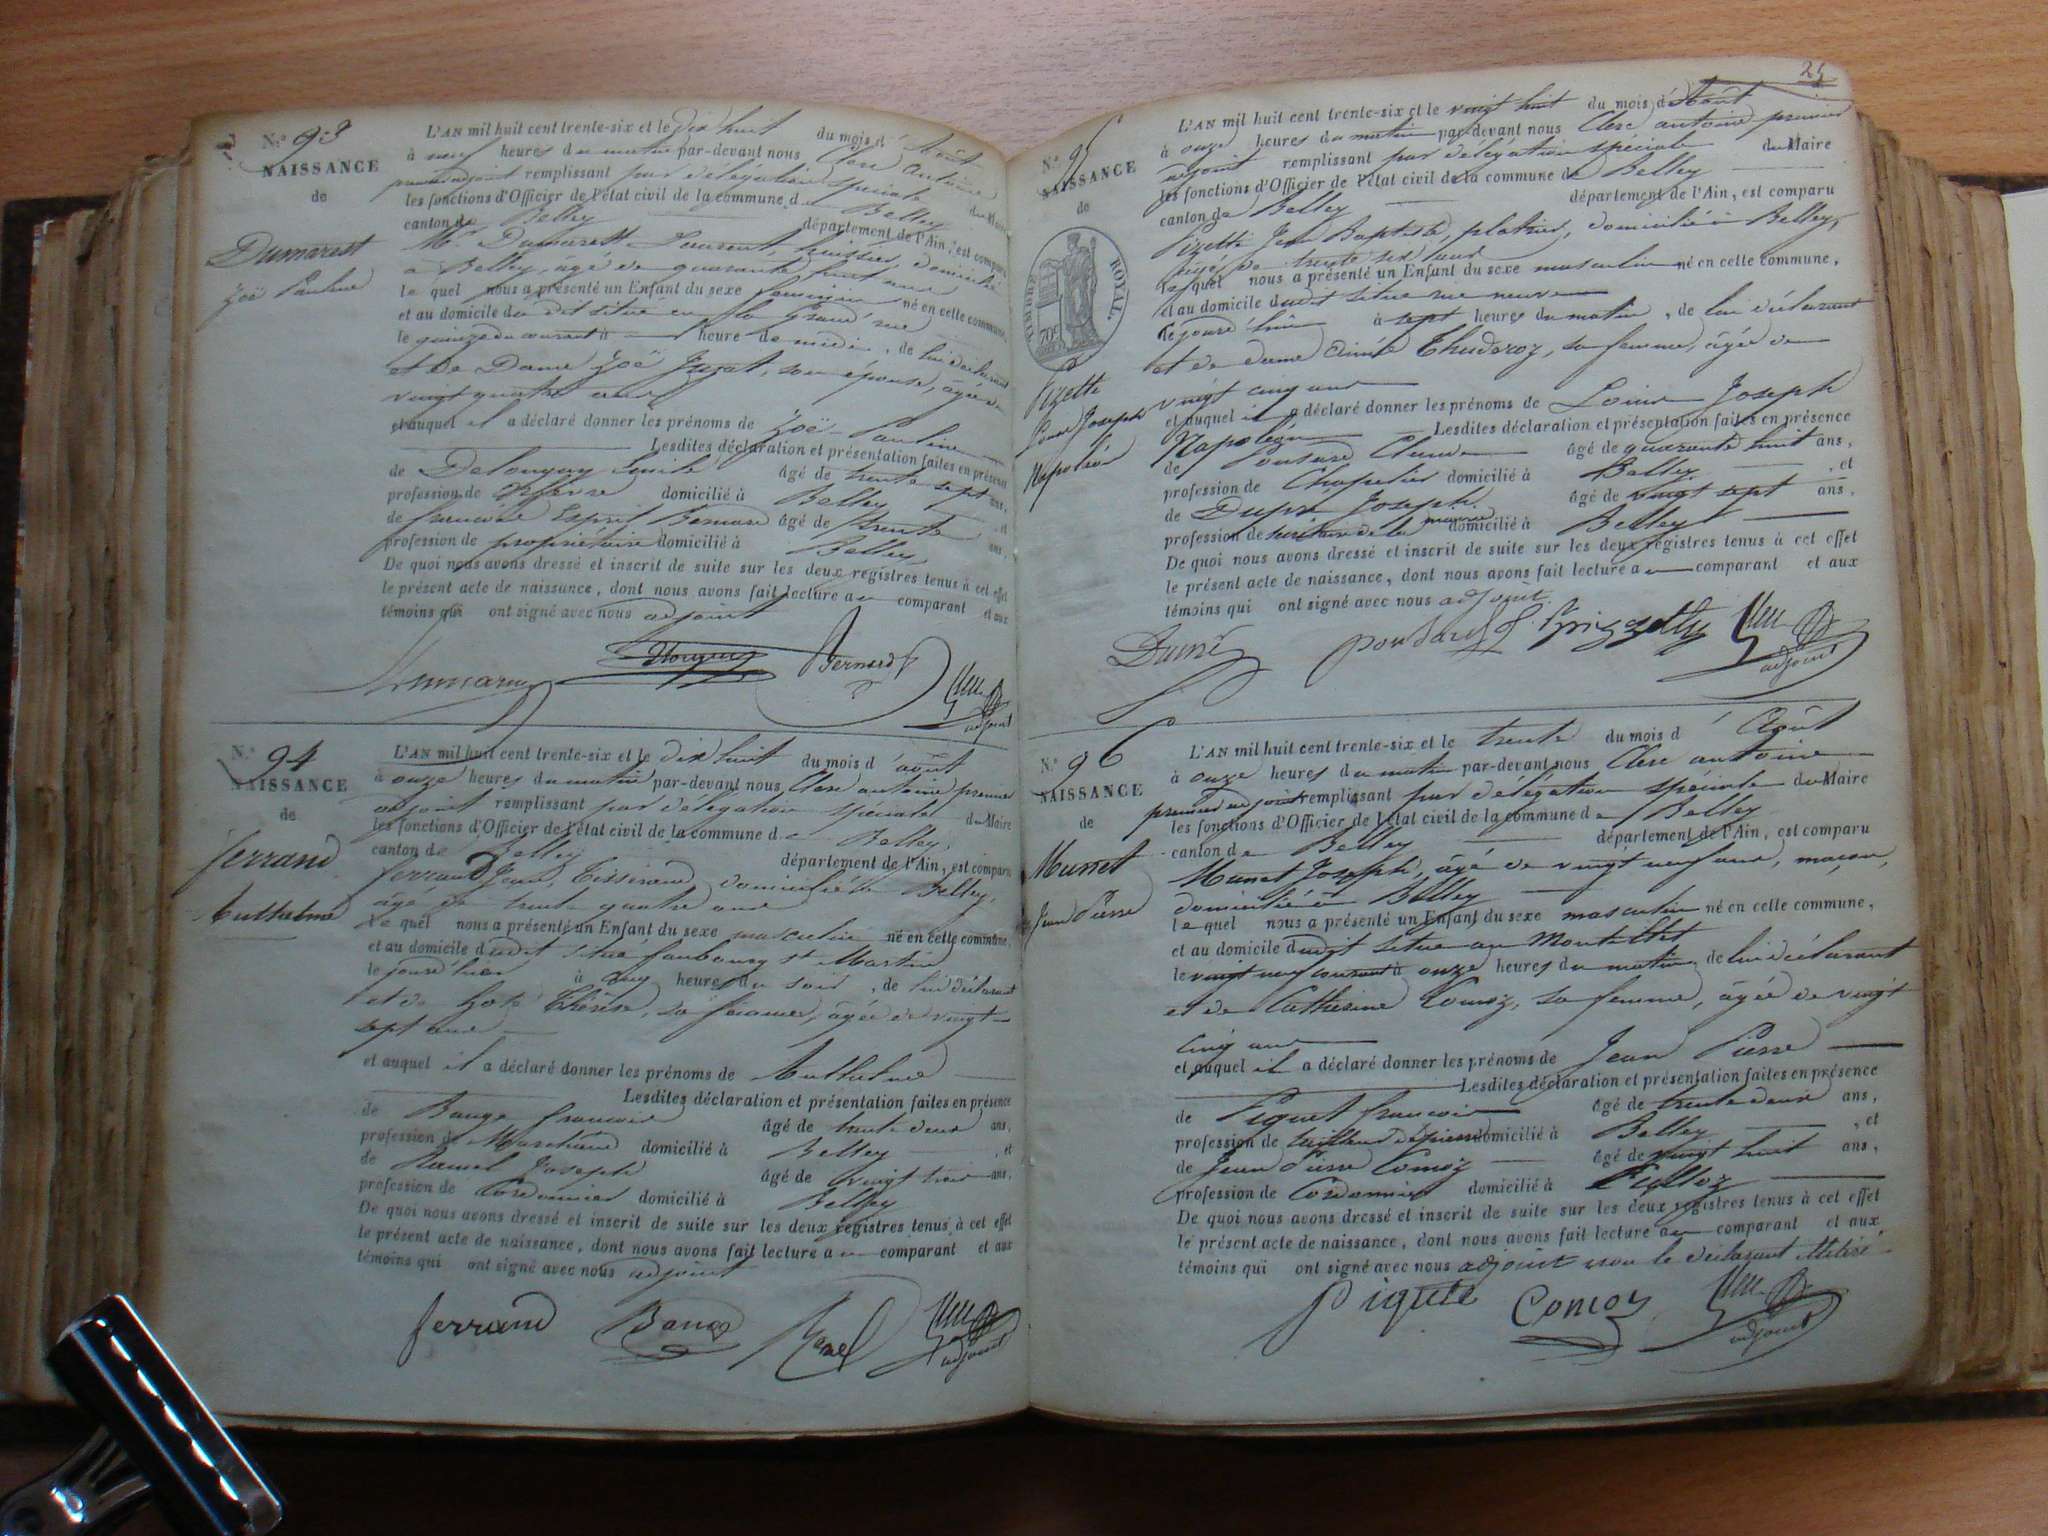 N.° 93
NAISSANCE
de
Dumarest
Zoë Pauline
L'AN mil huit cent trente-six et le dix huit du mois d'Août
à neuf heures du matin par-devant nous Clerc Antoine
premier adjoint remplissant par délégation spéciale du Maire
les fonctions d'Officier de l'état civil de la commune de Belley
canton de Belley département de l'Ain, est comparu
Mr Dumarest Laurent, huissier, domicilié
à Belley, âgé de quarante ans
le quel nous a présenté un Enfant du sexe féminin né en cette commune,
et au domicile du dit situé en la grand'rue
le quinze du courant à heure de midi, de lui déclarant
et de Dame Zoë Juzat, son épouse, âgée de
vingt quatre ans
et auquel il a déclaré donner les prénoms de Zoë Pauline
Lesdites déclaration et présentation faites en présence
de Delongny Emile âgé de trente sept ans,
profession de Orfèvre domicilié à Belley, et
de françois Esprit Bernard âgé de trente ans,
profession de propriétaire domicilié à Belley
De quoi nous avons dressé et inscrit de suite sur les deux registres tenus à cet effet
le présent acte de naissance, dont nous avons fait lecture au comparant et aux
témoins qui ont signé avec nous adjoint
Bernard
adjoint
N.° 94
NAISSANCE
de
ferrand
Anthelme
L'AN mil huit cent trente-six et le dix huit du mois d'août
à onze heures du matin par-devant nous Clerc antoine premier
adjoint remplissant par délégation spéciale du Maire
les fonctions d'Officier de l'état civil de la commune de Belley,
canton de Belley département de l'Ain, est comparu
ferrand Jean, Tisserand, domicilié à Belley,
âgé de trente quatre ans
le quel nous a présenté un Enfant du sexe masculin né en cette commune,
et au domicile dudit situé faubourg st Martin
le jour d'hier à cinq heures du soir, de lui déclarant
et de Thérèse, sa femme, âgée de vingt
sept ans
et auquel il a déclaré donner les prénoms de Anthelme
Lesdites déclaration et présentation faites en présence
de Bauge françois âgé de trente deux ans,
profession de Marchand domicilié à Belley, et
de Ramel Joseph âgé de vingt trois ans,
profession de Cordonnier domicilié à Belley
De quoi nous avons dressé et inscrit de suite sur les deux registres tenus à cet effet
le présent acte de naissance, dont nous avons fait lecture au comparant et aux
témoins qui ont signé avec nous adjoint
ferrand Bauge Ramel
adjoint
25
N.° 95
NAISSANCE
de
TIMBRE ROYAL.
70c
Pizetti
Louis Joseph
Napoléon
L'AN mil huit cent trente-six et le vingt huit du mois d'Août
à onze heures du matin par-devant nous Clerc antoine premier
adjoint remplissant par délégation spéciale du Maire
les fonctions d'Officier de l'état civil de la commune de Belley
canton de Belley département de l'Ain, est comparu
Pizetti Jean Baptiste, platrier, domicilié à Belley,
âgé de trente six ans
le quel nous a présenté un Enfant du sexe masculin né en cette commune,
et au domicile dudit situé rue neuve
le jourd'hui à sept heures du matin, de lui déclarant
et de dame Aimée Thuderoz, sa femme, âgée de
vingt cinq ans
et auquel il a déclaré donner les prénoms de Louis Joseph
Napoléon Lesdites déclaration et présentation faites en présence
de Ponsard Claude âgé de quarante huit ans,
profession de Chapelier domicilié à Belley, et
de Dupré Joseph âgé de vingt sept ans,
profession de secrétaire de la mairie domicilié à Belley
De quoi nous avons dressé et inscrit de suite sur les deux registres tenus à cet effet
le présent acte de naissance, dont nous avons fait lecture au comparant et aux
témoins qui ont signé avec nous adjoint.
Dupré ponsard
adjoint
N.° 96
NAISSANCE
de
Munet
Jean Pierre
L'AN mil huit cent trente-six et le trente du mois d'Août
à onze heures du matin par-devant nous Clerc antoine
premier adjoint remplissant par délégation spéciale du Maire
les fonctions d'Officier de l'état civil de la commune de Belley
canton de Belley département de l'Ain, est comparu
Munet Joseph, âgé de vingt neuf ans, maçon,
domicilié à Belley
le quel nous a présenté un Enfant du sexe masculin né en cette commune,
et au domicile dudit situé au Montillet
le vingt neuf courant à onze heures du matin, de lui déclarant
et de Catherine Comoz, sa femme, âgée de vingt
cinq ans
et auquel il a déclaré donner les prénoms de Jean Pierre
Lesdites déclaration et présentation faites en présence
de Piquet françois âgé de trente deux ans,
profession de tailleur de pierre domicilié à Belley, et
de Jean Pierre Comoz âgé de vingt huit ans,
profession de Cordonnier domicilié à
De quoi nous avons dressé et inscrit de suite sur les deux registres tenus à cet effet
le présent acte de naissance, dont nous avons fait lecture au comparant et aux
témoins qui ont signé avec nous adjoint non le déclarant illitéré
Piquet Comoz
adjoint